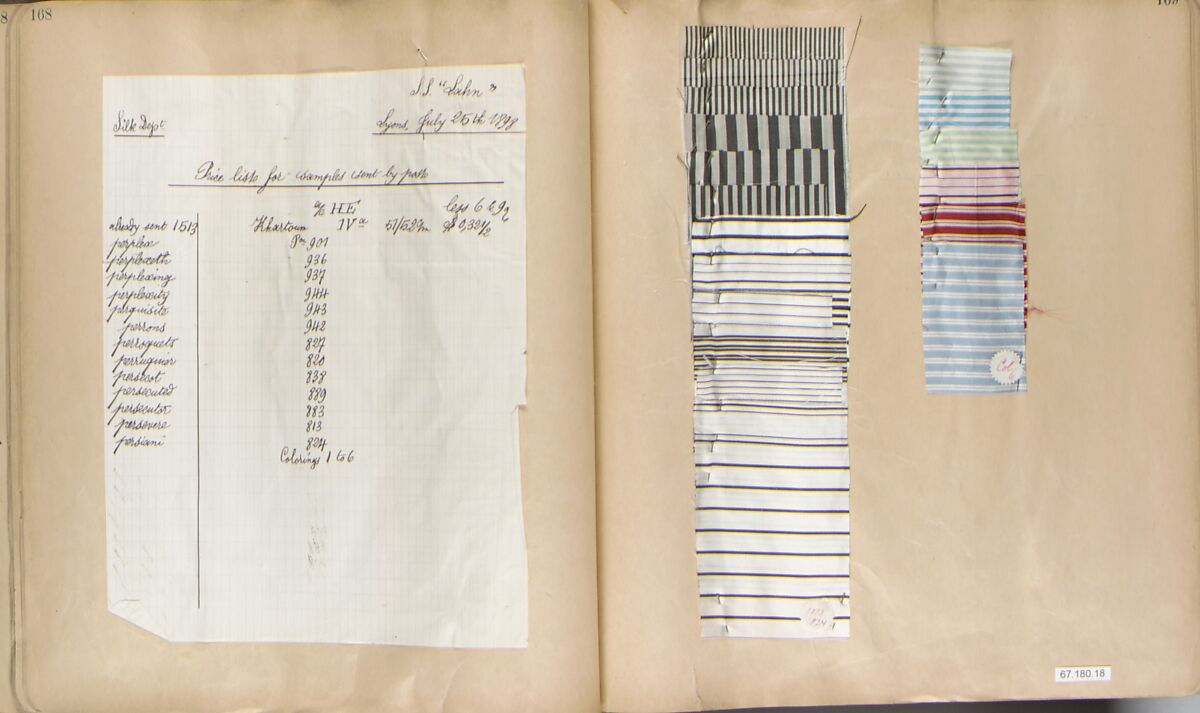 8 168
S.S. "Lahn"
Silk Dept
Lyons, July 25th 1898
Price lists for samples sent by post
a/c HE less 6 6,9%
already sent 1513 Khartoum IVa 51/52%m
perplex Pn 901
perplexeth 936
perplexing 937
perplexity 944
perquisite 943
perrons 942
perroquets 827
perruquier 820
persecot 838
persecuted 889
persecutor 883
persevere 813
persiani 824
Colorings 1 to 6
169
Col.
6
1513
824-1
67.180.18